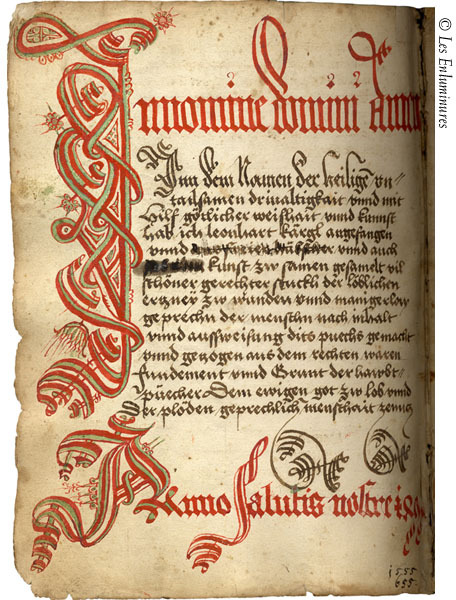 In nomine domini Amen
Inn dem Namen der heilligē vn=
tailsamen driualtigkait vnnd mit
hilf götlicher weishait vnnd kunnst
hab ich leonhart käegl angefangen
vnnd vnd auch
kunst zw samen gesamelt vil
schöner gerechter stuckh der löblichen
ertzney zw wunden vnnd manigerlay
geprechn der menschn nach inhalt
vnnd aussweisung dits puechs gemacht
vnnd getzogen aus dem rechten waren
fundement vnnd Grunt der hawbt=
püecher Dem ewigen got zw lob vnnd
der plöden geprechlich menschait
Anno Salutis nostre
1555
655
© Les Enluminures